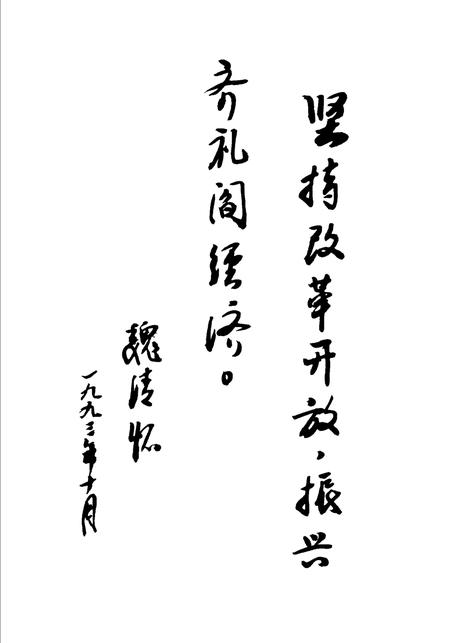 坚持改革开放，振兴
齐礼阎经济。
魏清怀
一九九三年十月